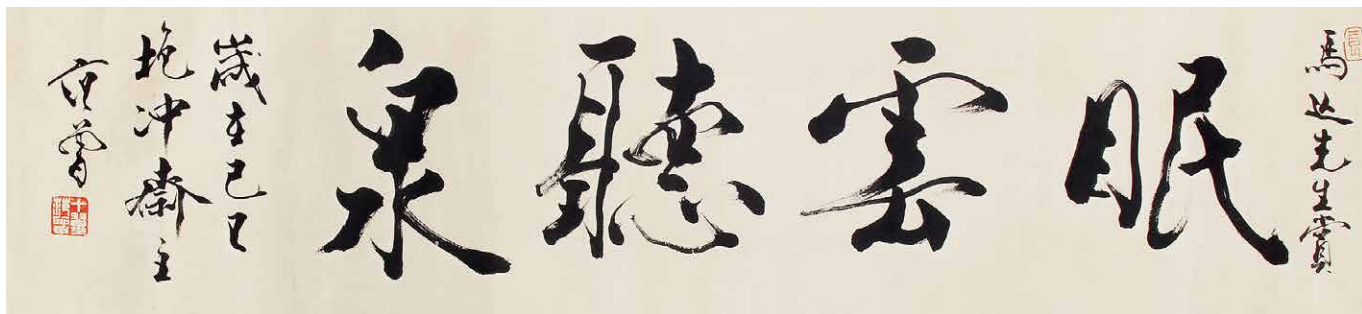 馬达先生賞
眠雲聽泉
歲在己巳
抱冲齋主
范曾